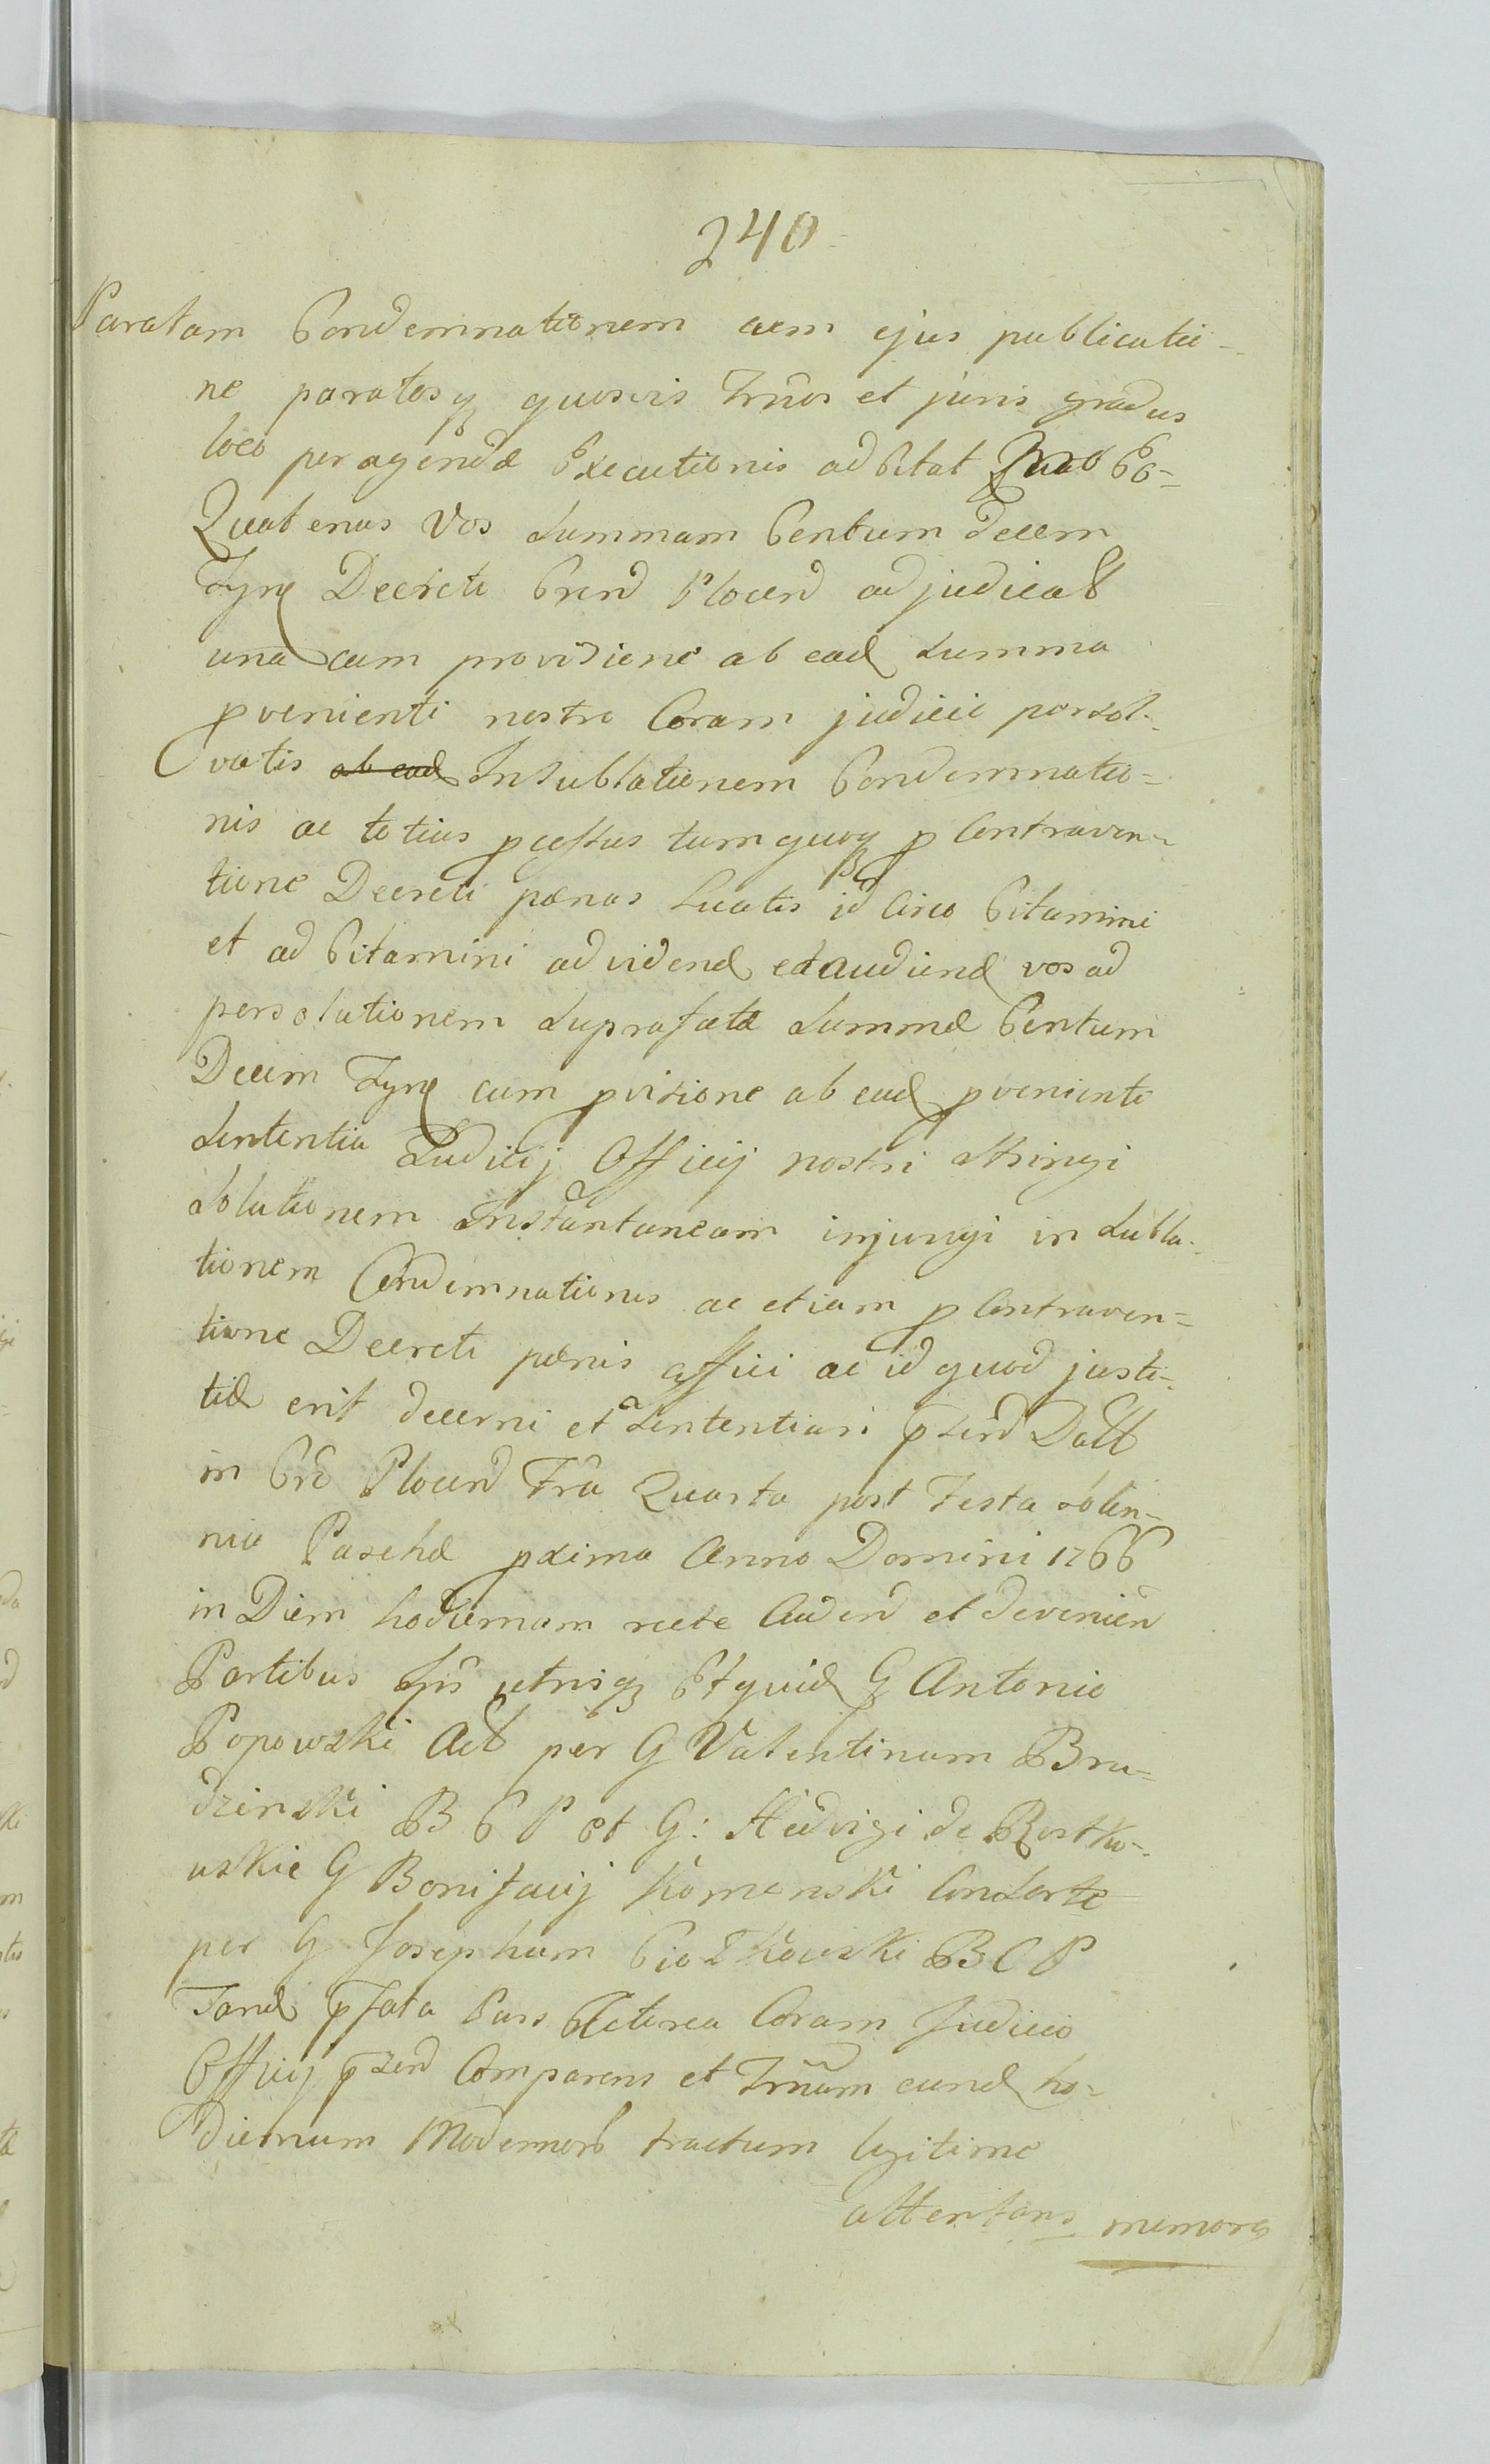 240
Paratam Condemnationem cum ejus publicatio-
ne paratosq quosvis Trnos et juris gradus
loco peragendæ Executionis ad Citat Co-
Quatenus Vos Summam Centum decem
Tynf Decreto Cren Plocen adjudicat
una cum provisione ab ead Summa
pvenienti nostro Coram judicio persol-
vatis ab ead In sublationem Condemnatio-
nis ac totius pcessus tum quoq p Contraven-
tione Decreti pænas Luatis id Circo Citamini
et ad Citamini ad vidend et audiend vos ad
persolutionem Suprafatæ Summæ Centum
Decem Tynf cum pvisione ab ead pveniente
Sententia Judicij Officij nostri Stringi
Solutionem Instantaneam injungi in Subla-
tionem Condemnationis ac etiam p Contraven-
tione Decreti pænis affici ac id quod justi-
tiæ erit decerni et Sententiari psen Datt
in Cro Plocen Fra Quarta post Festa Solen-
nia Paschæ pxima Anno Domini 1766
in Diem hodiernam recte Caden et devenien
Partibus Ipis utrisq Et quid G Antonio
Popowski Act per G Valentinum Bru-
dzinski B C P et G: Hedvigi de Rostko-
wskie G Bonifacij Komenski Consorte
per G Josephum Ciołkowski B C P
Tand pfata Pars Actorea Coram Judicio
Officij psen Comparens et Trnum eund ho-
diernum Modernor tractum legitime
attentans memorq